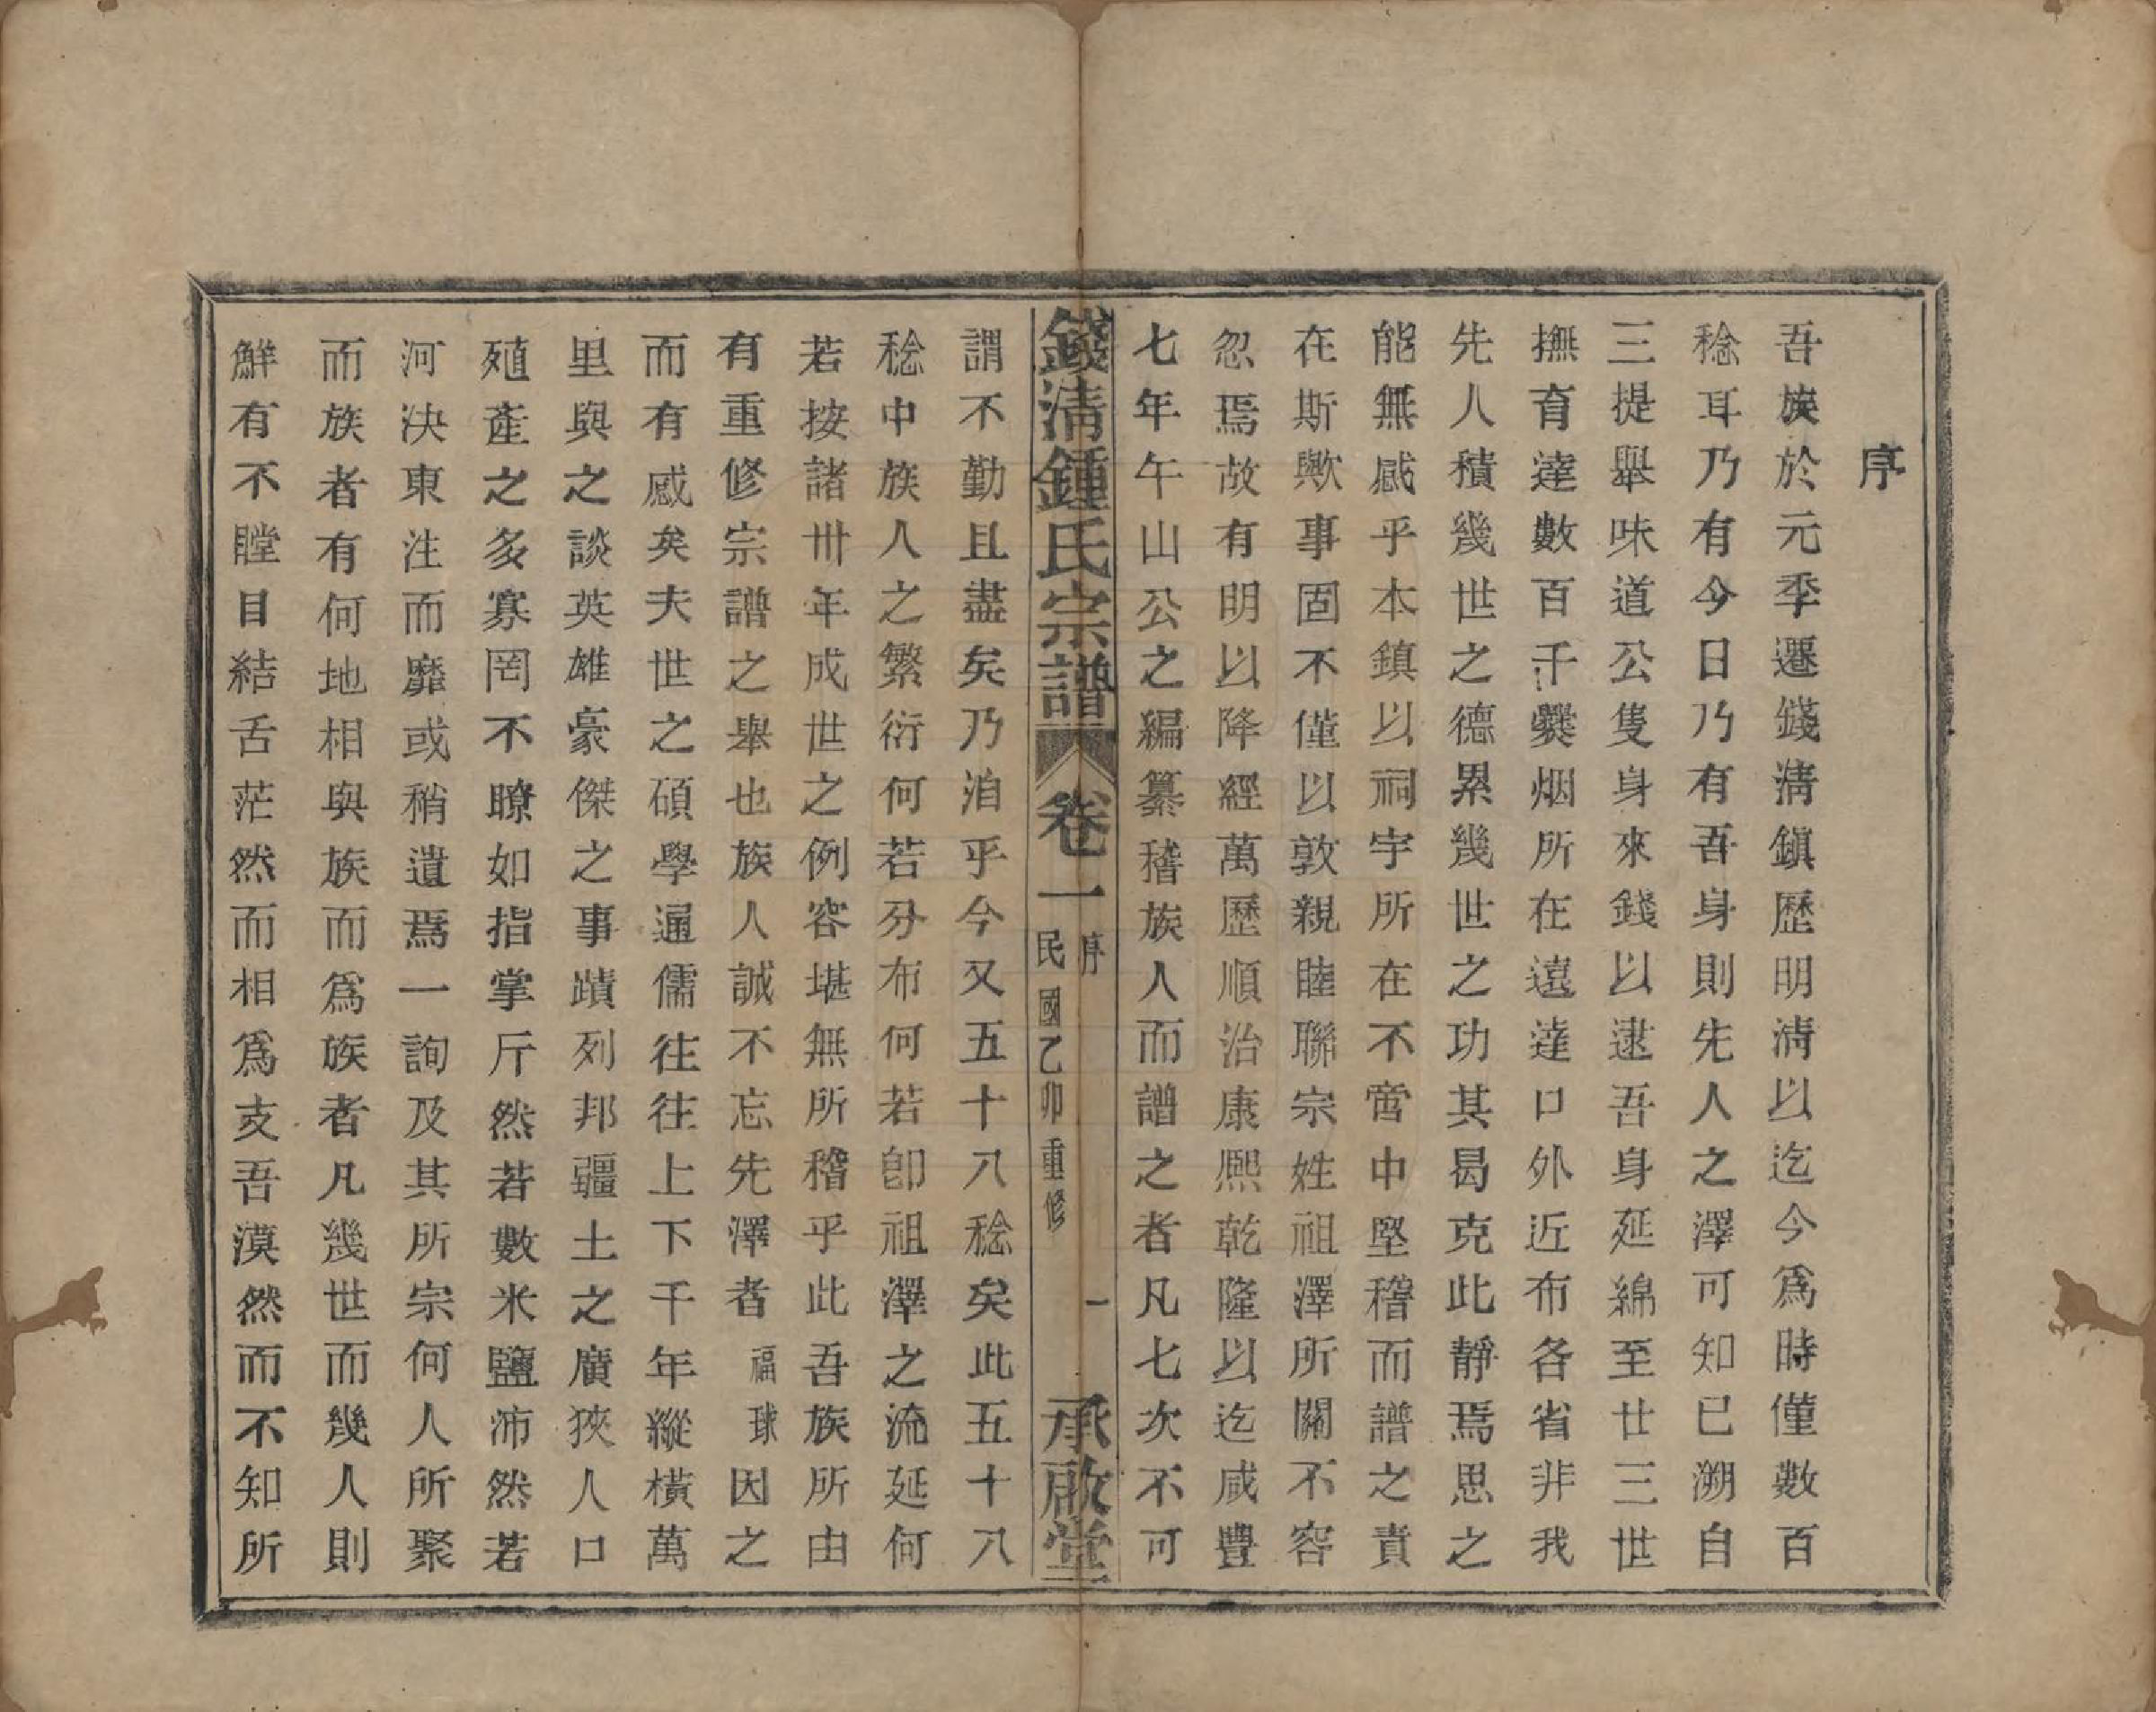 序
吾族於元季遷錢清鎮歷明清以迄今爲時僅數百
稔耳乃有今日乃有吾身則先人之澤可知已溯自
三提舉味道公隻身來錢以逮吾身延綿至廿三世
撫育達數百千爨烟所在遠達口外近布各省非我
先人積幾世之德累幾世之功其曷克此靜焉思之
能無感乎本鎮以祠宇所在不啻中堅稽而譜之責
在斯歟事固不僅以敦親睦聯宗姓祖澤所關不容
忽焉故有明以降經萬歷順治康熙乾隆以迄咸豐
七年午山公之編纂稽族人而譜之者凡七次不可
錢清鍾氏宗譜 卷一 序 民國乙卯重修 一 承啟堂
謂不勤且盡矣乃洎乎今又五十八稔矣此五十八
稔中族人之繁衍何若分布何若卽祖澤之流延何
若按諸卅年成世之例容堪無所稽乎此吾族所由
有重修宗譜之舉也族人誠不忘先澤者福球因之
而有感矣夫世之碩學通儒往往上下千年縱橫萬
里與之談英雄豪傑之事蹟列邦疆土之廣狹人口
殖產之多寡罔不瞭如指掌斤然若數米鹽沛然若
河決東注而靡或稍遺焉一詢及其所宗何人所聚
而族者有何地相與族而爲族者凡幾世而幾人則
鮮有不瞠目結舌茫然而相爲支吾漠然而不知所